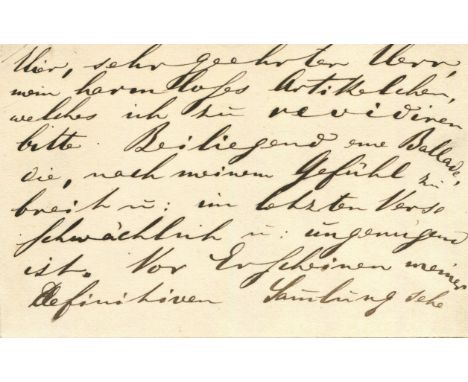 Hier, sehr geehrter Herr,
mein harmloses Artikelchen,
welches ich zu revidiren
bitte. Beiliegend eine Ballade,
die, nach meinem Gefühl zu
breit u: im letzten Verse
schwächlich u: ungenügend
ist. Vor Erscheinen meiner
Definitiven Sam̄lung sehe